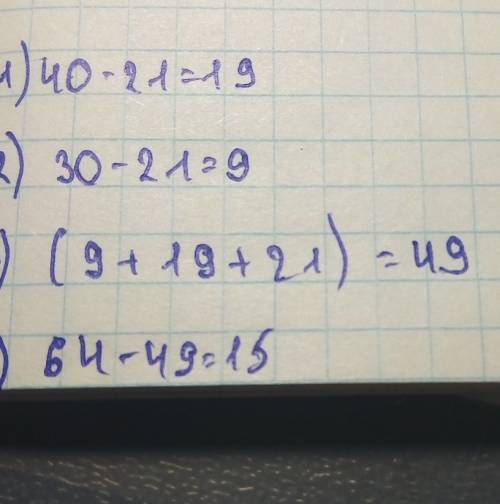 1) 40-21=19
2) 30-21=9
) (9+19+21) =49
) 64-49=15